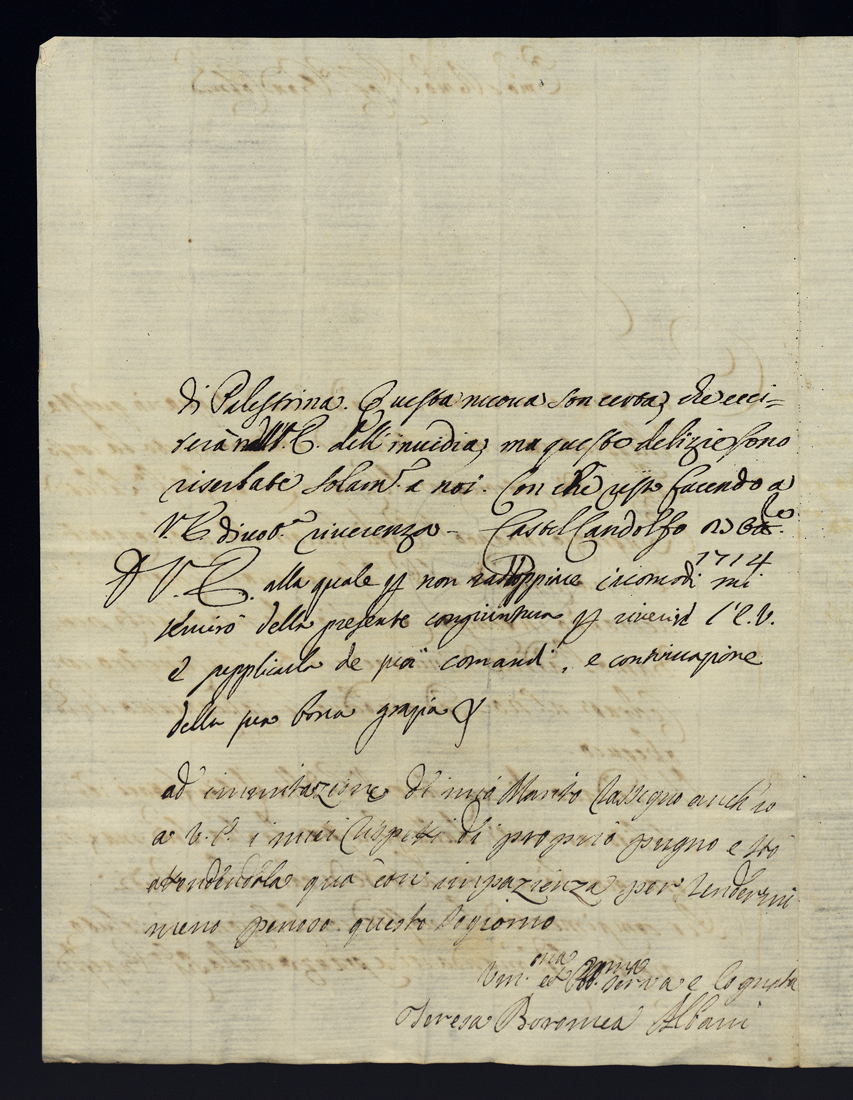 di Palestrina. Questa nuova son certa, che ecci=
terà nell'V.E. dell'invidia, ma queste delizie sono
riserbate solam.e a noi. Con che resto facendo a
V.E. divot.a riverenza - Castel Gandolfo
1714
D V.E. alla quale p non radoppiare incomodi mi
servirò della presente congiuntura p riverir l'E.V.
e supplicarla de suoi comandi, e continuazione
della sua bona grazia
ad immitazione di mio Marito rassegno anch'io
a V.E. i miei rispetti di proprio pugno e stò
atendendola qua con impazienza per rendermi
meno penoso questo sogiorno
Um.ma ed Obb.ma serva e Cognata
Teresa Boromea Albani